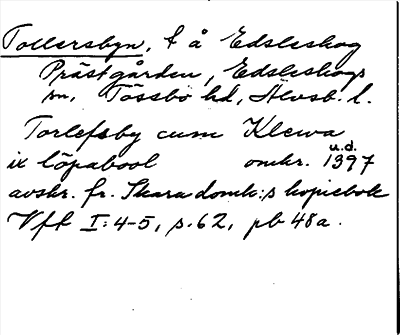 Tollersbyn, t å Edsleskog
Prästgården, Edsleskogs
sn, Tössbo hd, Älvsb. l.
Torlefsby cum Klewa
u.d.
ix löpabool omkr. 1397
avskr. fr. Skara domk:s kopiebok
Vff I:4-5, s. 62, pb 48a.